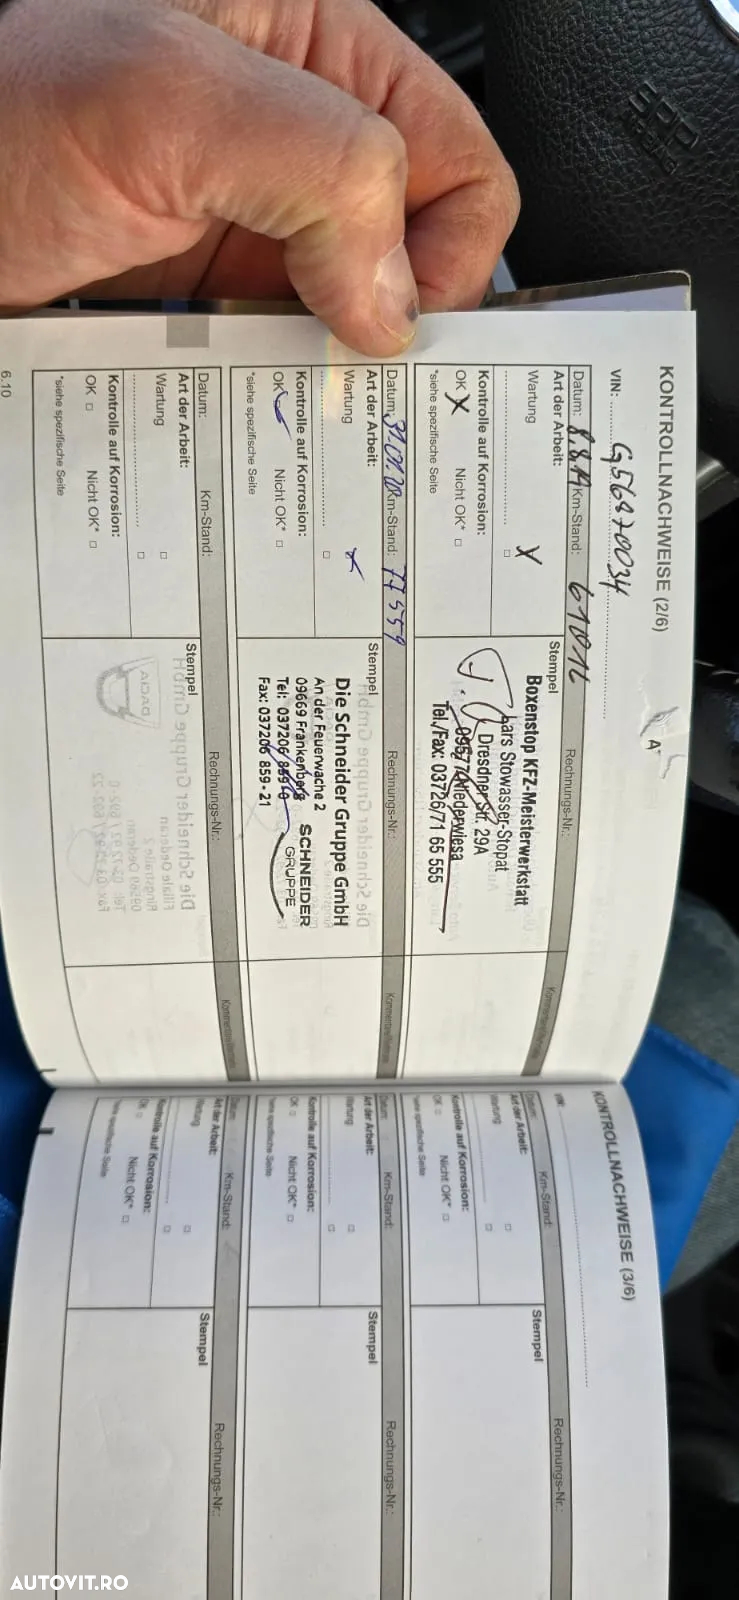 SRP
AIRBAG
KONTROLLNACHWEISE (2/6)
VIN: G56970034
A*
Datum: 8.8.19 Km-Stand: 61016 Rechnungs-Nr.:
Art der Arbeit:
Wartung
Kontrolle auf Korrosion:
OK X Nicht OK* □
*siehe spezifische Seite
Stempel
Boxenstop KFZ-Meisterwerkstatt
Lars Stowasser-Stopat
Dresdner Str. 29A
09577 Niederwiesa
Tel./Fax: 03726/71 65 555
Datum: 31.07.20 Km-Stand: 77559 Rechnungs-Nr.:
Art der Arbeit:
Wartung
Kontrolle auf Korrosion:
OK Nicht OK* □
*siehe spezifische Seite
Stempel
Die Schneider Gruppe GmbH
An der Feuerwache 2
09669 Frankenberg
Tel: 037206 859-0
Fax: 037206 859-21
SCHNEIDER
GRUPPE
Datum: Km-Stand: Rechnungs-Nr.:
Art der Arbeit:
Wartung □
□
Kontrolle auf Korrosion:
OK □ Nicht OK* □
*siehe spezifische Seite
Stempel
6.10
KONTROLLNACHWEISE (3/6)
VIN:
Datum: Km-Stand: Rechnungs-Nr.:
Art der Arbeit:
Wartung □
□
Kontrolle auf Korrosion:
OK □ Nicht OK* □
*siehe spezifische Seite
Stempel
Datum: Km-Stand: Rechnungs-Nr.:
Art der Arbeit:
Wartung □
□
Kontrolle auf Korrosion:
OK □ Nicht OK* □
*siehe spezifische Seite
Stempel
Datum: Km-Stand: Rechnungs-Nr.:
Art der Arbeit:
Wartung □
□
Kontrolle auf Korrosion:
OK □ Nicht OK* □
*siehe spezifische Seite
Stempel
AUTOVIT.RO